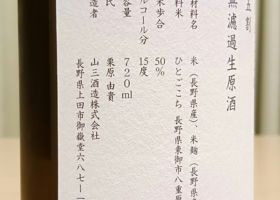 無濾過生原酒
材料名 米（長野県産）米麹（長野県
料米 ひとごこち 長野県東御市八重原
米歩合 50%
ルコール分 15度
容量 720ml
氏 栗原 由貴
造者 山三酒造株式会社
長野県上田市御嶽堂六八七ー一